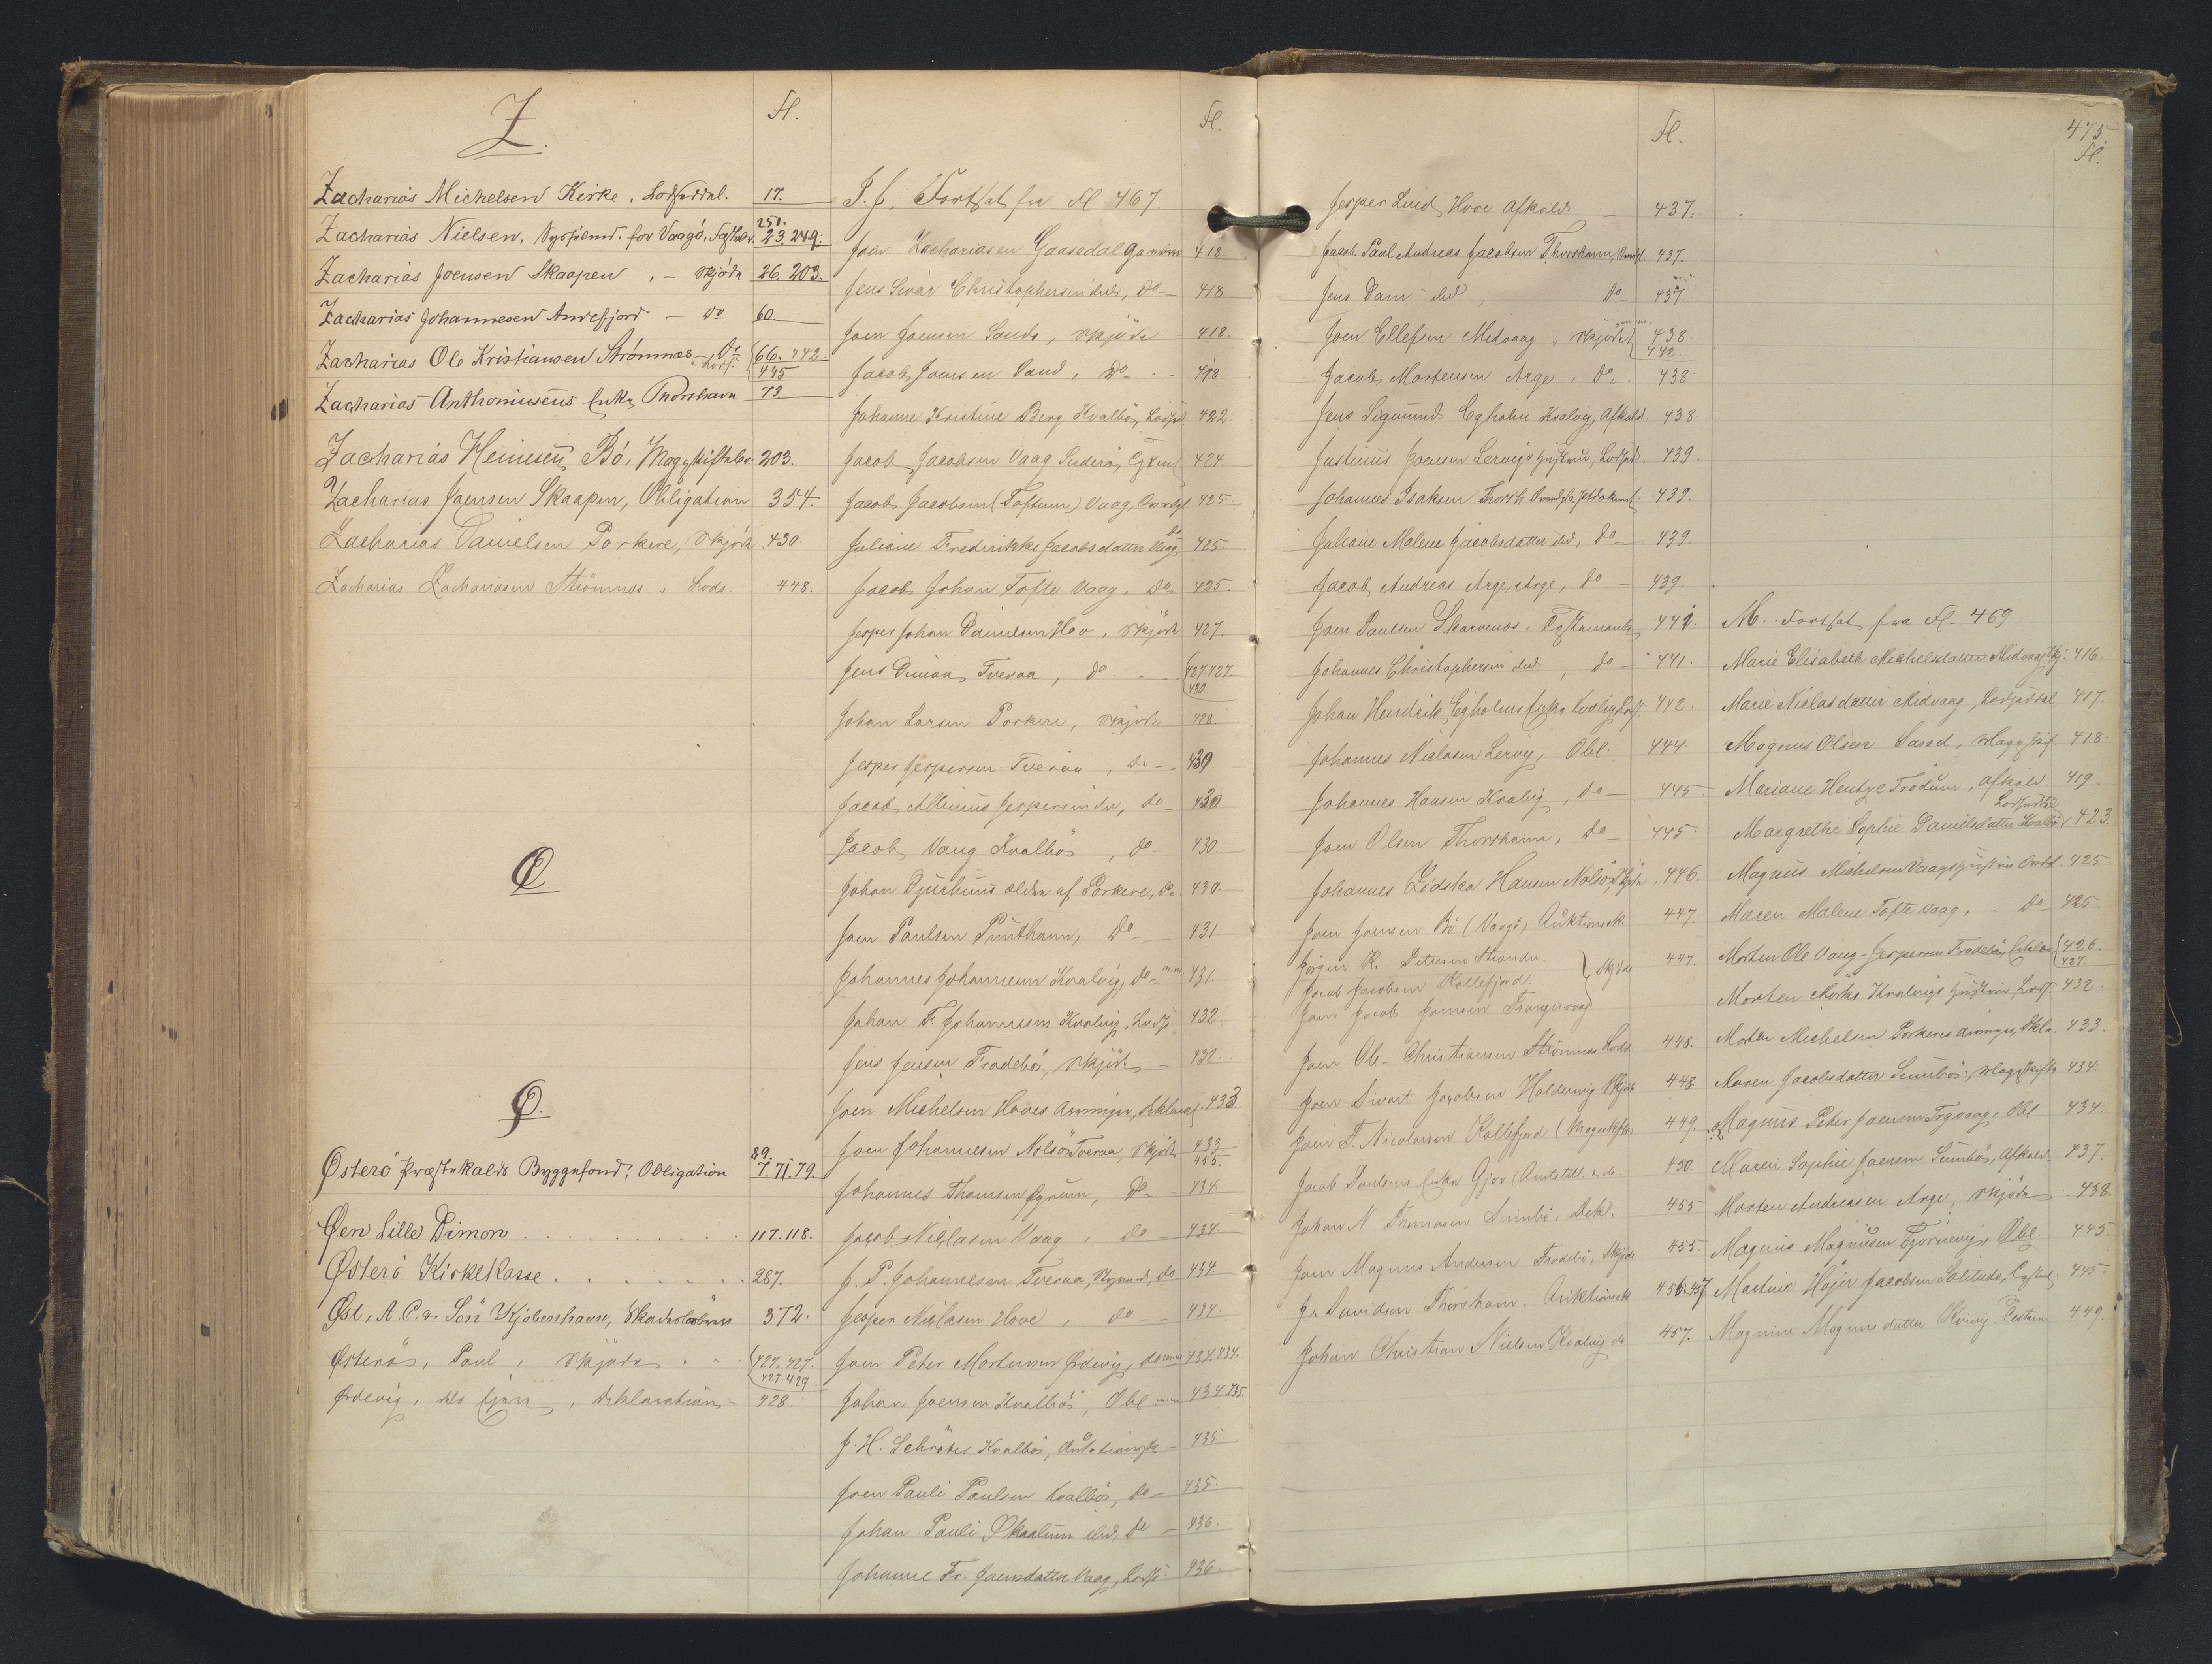 Z.
Fl.
Zacharias Michelsen Kirke, Lodseddel. 17.
Zacharias Nielsen, for Vaagö, 250. 23. 249.
Zacharias Joensen Skaapen, - Skjöde 26. 203.
Zacharias Johannesen Andefjord - Do 60.
Zacharias Ole Kristiansen Strömnæs - Do 66. 442.
Lods. 445
Zacharias Anthoniusens Enke, Thorshavn 73.
Zacharias Heinesen Bö, Mageskiftebr. 203.
Zacharias Joensen Skaapen, Obligation 354.
Zacharias Danielsen Porkere, Skjöde 430.
Zacharias Zachariasen Strömnæs, Lods. 448.
Œ.
Ø.
Østerö Præstekalds Byggefond, Obligation 89. 7. 71. 79.
Øen Lille Dimon 117. 118.
Østerö Kirkekasse 287.
Øst, A. C. & Sön Kjöbenhavn, Skadeslösbrev 372.
Österö, Poul, Skjöde 427. 427.
427. 429
Ördevig, Deklaration 428.
Fl.
I. J. Fortsat fra Fl 467.
Joen Zachariasen Gaasedal 418
Jens Sivar Christophersen ibd., Do 418
Joen Joensen Sand, Skjöde 418.
Jacob Joensen Sand, Do 418
Johanne Kristine Berg Kvalbö, Lodsed 422.
Jacob Jacobsen Vaag Suderö, 424.
Jacob Jacobsen (Toftum) Vaag, Overdgl. 425
Juliane Frederikke Jacobsdatter Vaag, Do 425.
Jacob Johan Tofte Vaag, Do 425.
Jesper Johan Danielsen Hov, Skjöde 427.
Jens Dimon, Tveraa, Do 427. 427
430.
Johan Larsen Porkere, Skjöde 428.
Jesper Jespersen Tveraa, Do 430
Jacob Jespersen ibd, Do 430
Jacob Vang Kvalbö, Do 430.
Johan Djurhuus ældre af Porkere, Do 430.
Joen Paulsen Punthavn, Do 431
Johannes Johannesen Kvalvig, Do m.m. 431.
Johan F. Johannesen Kvalvig, Lods. 432.
Jens Jensen Frodebö, Skjöde 432
Joen Michelsen Hoves Arvinger, Deklarat. 433
Joen Johannesen Nolsö Tveraa, Skjöde 433
455.
Johannes Thomsen Öyrum, Do 434.
Jacob Niclasen Vaag, Do 434
J. P. Johannesen Tveraa, Do 434
Jesper Niclasen Hove, Do 434.
Joen Peter Mortensen Ördevig, Do m.m. 434. 434.
Johan Joensen Kvalbö, Obl m.m. 434. 435.
J. H. Schröter Kvalbö, Auktionssk 435
Joen Pauli Paulsen Kvalbö, Do 435
Johan Pauli Skaalum ibd, Do 436.
Johanne Fr. Joensdatter Vaag, Lods. 436.
Fl.
Jesper Lind, Hove Afkald 437.
Jacob Paul Andreas Jacobsen Thorshavn, 437.
Jens Dam ibd, Do 437.
Joen Ellefsen Midvaag, Skjöde 438.
442.
Jacob Mortensen Arge, Do 438
Jens Sigmund Egholm Kvalvig, Afkald 438
Justinus Joensen Lervigs Hustru, Lodsed. 439.
Johannes Isaksen Thorsh 439.
Juliane Malene Jacobsdatter ibd, Do 439
Jacob Andreas Arge, Arge, Do 439.
Joen Paulsen Skarvenæs, Testamente 441.
Johannes Christophersen ibd, Do 441.
Johan Hendrik Egholms Enke Kvalvig, Lods. 442.
Johannes Niclasen Lervig, Obl. 444
Johannes Hansen Kvalvig, Do 445
Joen Olsen Thorshavn, Do 445
Johannes Zidska Hansen Nolsö, Skjöde 446.
Joen Joensen Bö (Vaagö), Auktionssk. 447.
Jörgen K. Petersen Strender. 447.
Jacob Jacobsen Kollefjord } Skjöde
Joen Jacob Joensen Trangisvaag
Joen Ole Christiansen Strömnæs Lods. 448.
Joen Sivart Jacobsen Haldersvig Skjöde 448
Joen F. Nicolaisen Kollefjord (Mageskifte 449.
Jacob Poulsens Enke Gjov (Amtstill. 450.
Johan N. Thomasen Sumbö, Dekl. 455
Joen Magnus Andersen Frodebö, Skjöde 455.
J. Davidsen Thorshavn, Auktionssk 456. 457
Johan Christian Nielsen Kvalvig do 457.
475.
Fl.
M. Fortsat fra Fl. 469
Marie Elisabeth Michelsdatter Midvaag Skj. 416
Marie Niclasdatter Midvaag, Lodseddel 417.
Magnus Olsen Sand, Mageskift. 418.
Mariane Hentze Frodum, Afkald 419.
Margrethe Sophie Danielsdatter Kvalbö, Lodseddel 423.
Magnus Michelsen Vaags Hustru 425
Maren Malene Tofte Vaag, Do 425.
Morten Ole Vang-Jespersen Frodebö, Erklær. 426.
427
Morten Mörks Kvalvigs Hustru, Lods. 432
Morten Michelsen Porkeres Arvinger, Dekla. 433.
Maren Jacobsdatter Sumbö, Mageskifte 434.
Magnus Peter Joensen Frgvaag, Obl 434.
Maren Sophie Joensen Sumbö, Afkald. 437.
Morten Andreasen Arge, Skjöde 438.
Magnus Magnusen Tjörnevig, Obl. 445.
Martine Höjer Jacobsen Solitude, 445.
Magnine Magnusdatter Hvivig, Testam. 449.